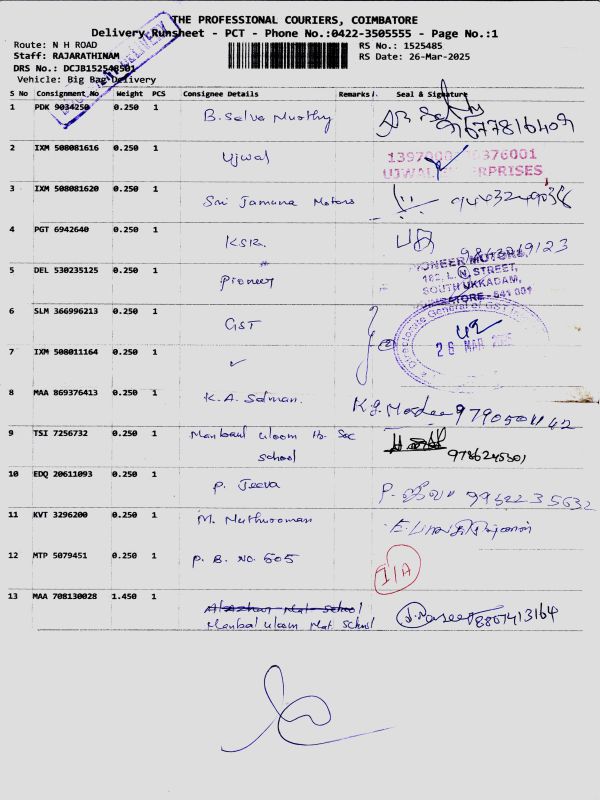 THE PROFESSIONAL COURIERS, COIMBATORE
Delivery Runsheet - PCT - Phone No.:0422-3505555 - Page No.:1
Route: N H ROAD RS No.: 1525485
Staff: RAJARATHINAM RS Date: 26-Mar-2025
DRS No.: DCJB152548501
Vehicle: Big Bag Delivery
S No Consignment No Weight PCS Consignee Details Remarks/. Seal & Signature
1 PDK 9034250 0.250 1 B. Selva Murthy 9677816409
2 IXM 508081616 0.250 1 Ujwal
UJWAL ENTERPRISES
3 IXM 508081620 0.250 1 Sri Jamuna Motors
4 PGT 6942640 0.250 1 KSR.
5 DEL 530235125 0.250 1 Pioneer
PIONEER MOTORS,
182, L. N. STREET,
SOUTH UKKADAM,
COIMBATORE - 641 001
6 SLM 366996213 0.250 1 GST
Directorate General of GST
26 MAR 2025
7 IXM 508011164 0.250 1 ✓
8 MAA 869376413 0.250 1 K.A. Salman.
9 TSI 7256732 0.250 1 Manbaul Uloom Hr. Sec
School
10 EDQ 20611093 0.250 1 P. Jeeva P. ஜீவா 9962235632
11 KVT 3296200 0.250 1 M. Muthuraman
12 MTP 5079451 0.250 1 P. B. NO. 505 I/A
13 MAA 708130028 1.450 1 Alazhar Mat School
Manbal Uloom Mat. School 8807413164